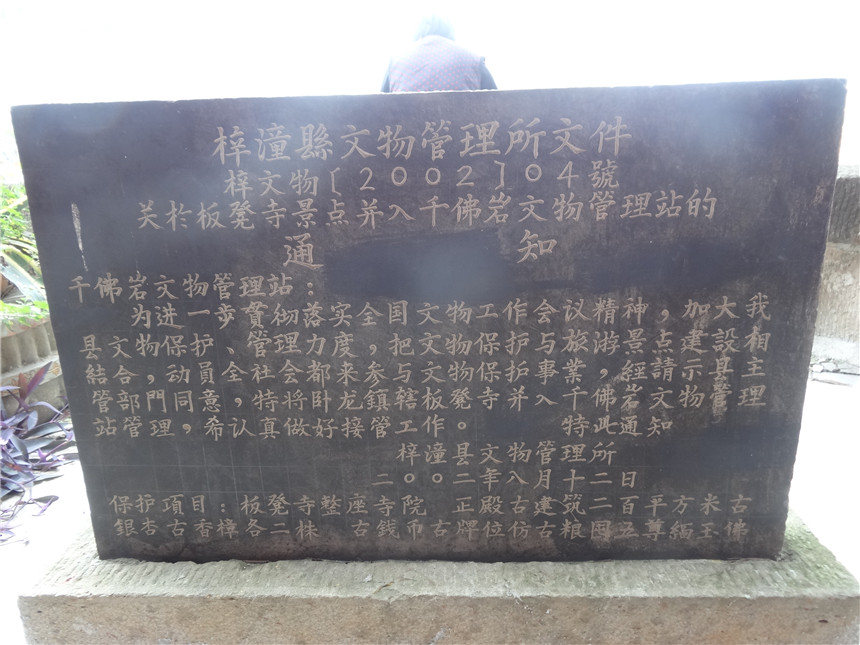 梓潼縣文物管理所文件
梓文物[2002]04號
关於板凳寺景点并入千佛岩文物管理站的
通知
千佛岩文物管理站:
为进一步貫彻落实全国文物工作会议精神,加大我
县文物保护、管理力度,把文物保护与旅游景点建設相
結合,动員全社会都来参与文物保护事業,經請示县主
管部門同意,特将卧龙鎮辖板凳寺并入千佛岩文物管理
站管理,希认真做好接管工作。特此通知
梓潼县文物管理所
二〇〇二年八月十二日
保护項目:板凳寺整座寺院正殿古建筑二百平方米古
銀杏古香樟各二株 古錢币古牌位仿古粮囤五尊緬玉佛